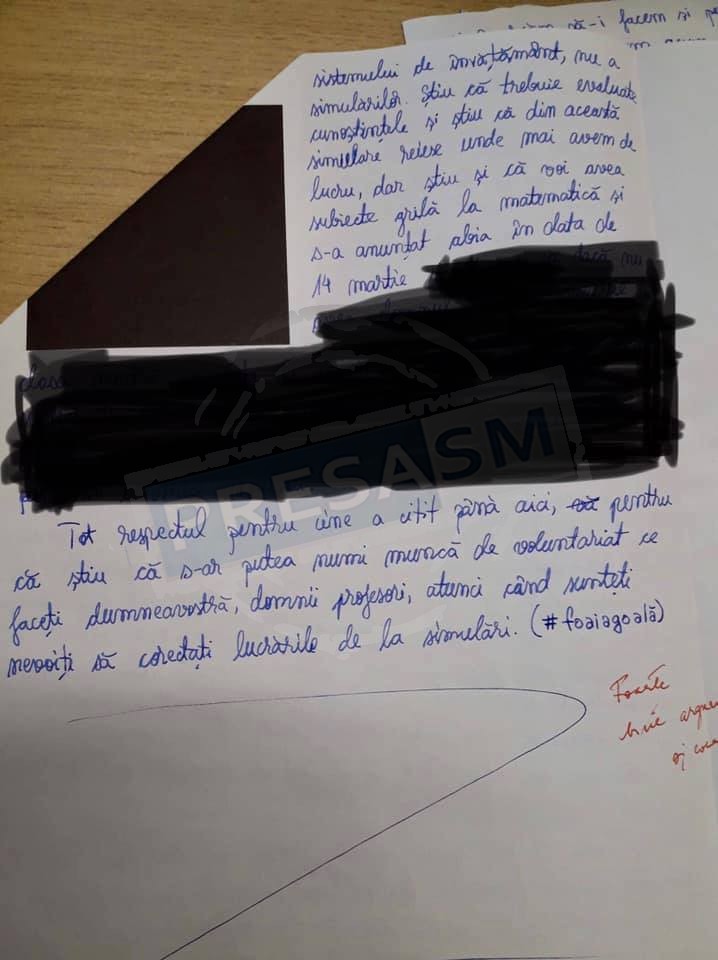 să-i facem și
sistemului de învățământ, nu a
simulărilor. Știu că trebuie evaluate
cunoștințele și știu că din această
simulare reiese unde mai avem de
lucru, dar știu și că voi avea
subiecte grilă la matematică și
s-a anunțat abia în data de
14 martie dacă nu
clasa
PRESASM
Tot respectul pentru cine a citit până aici, pentru
că știu că s-ar putea numi muncă de voluntariat ce
faceți dumneavostră, domnii profesori, atunci când sunteți
nevoiți să corectați lucrările de la simulări. (#foaiagoală)
Foarte
bine
și